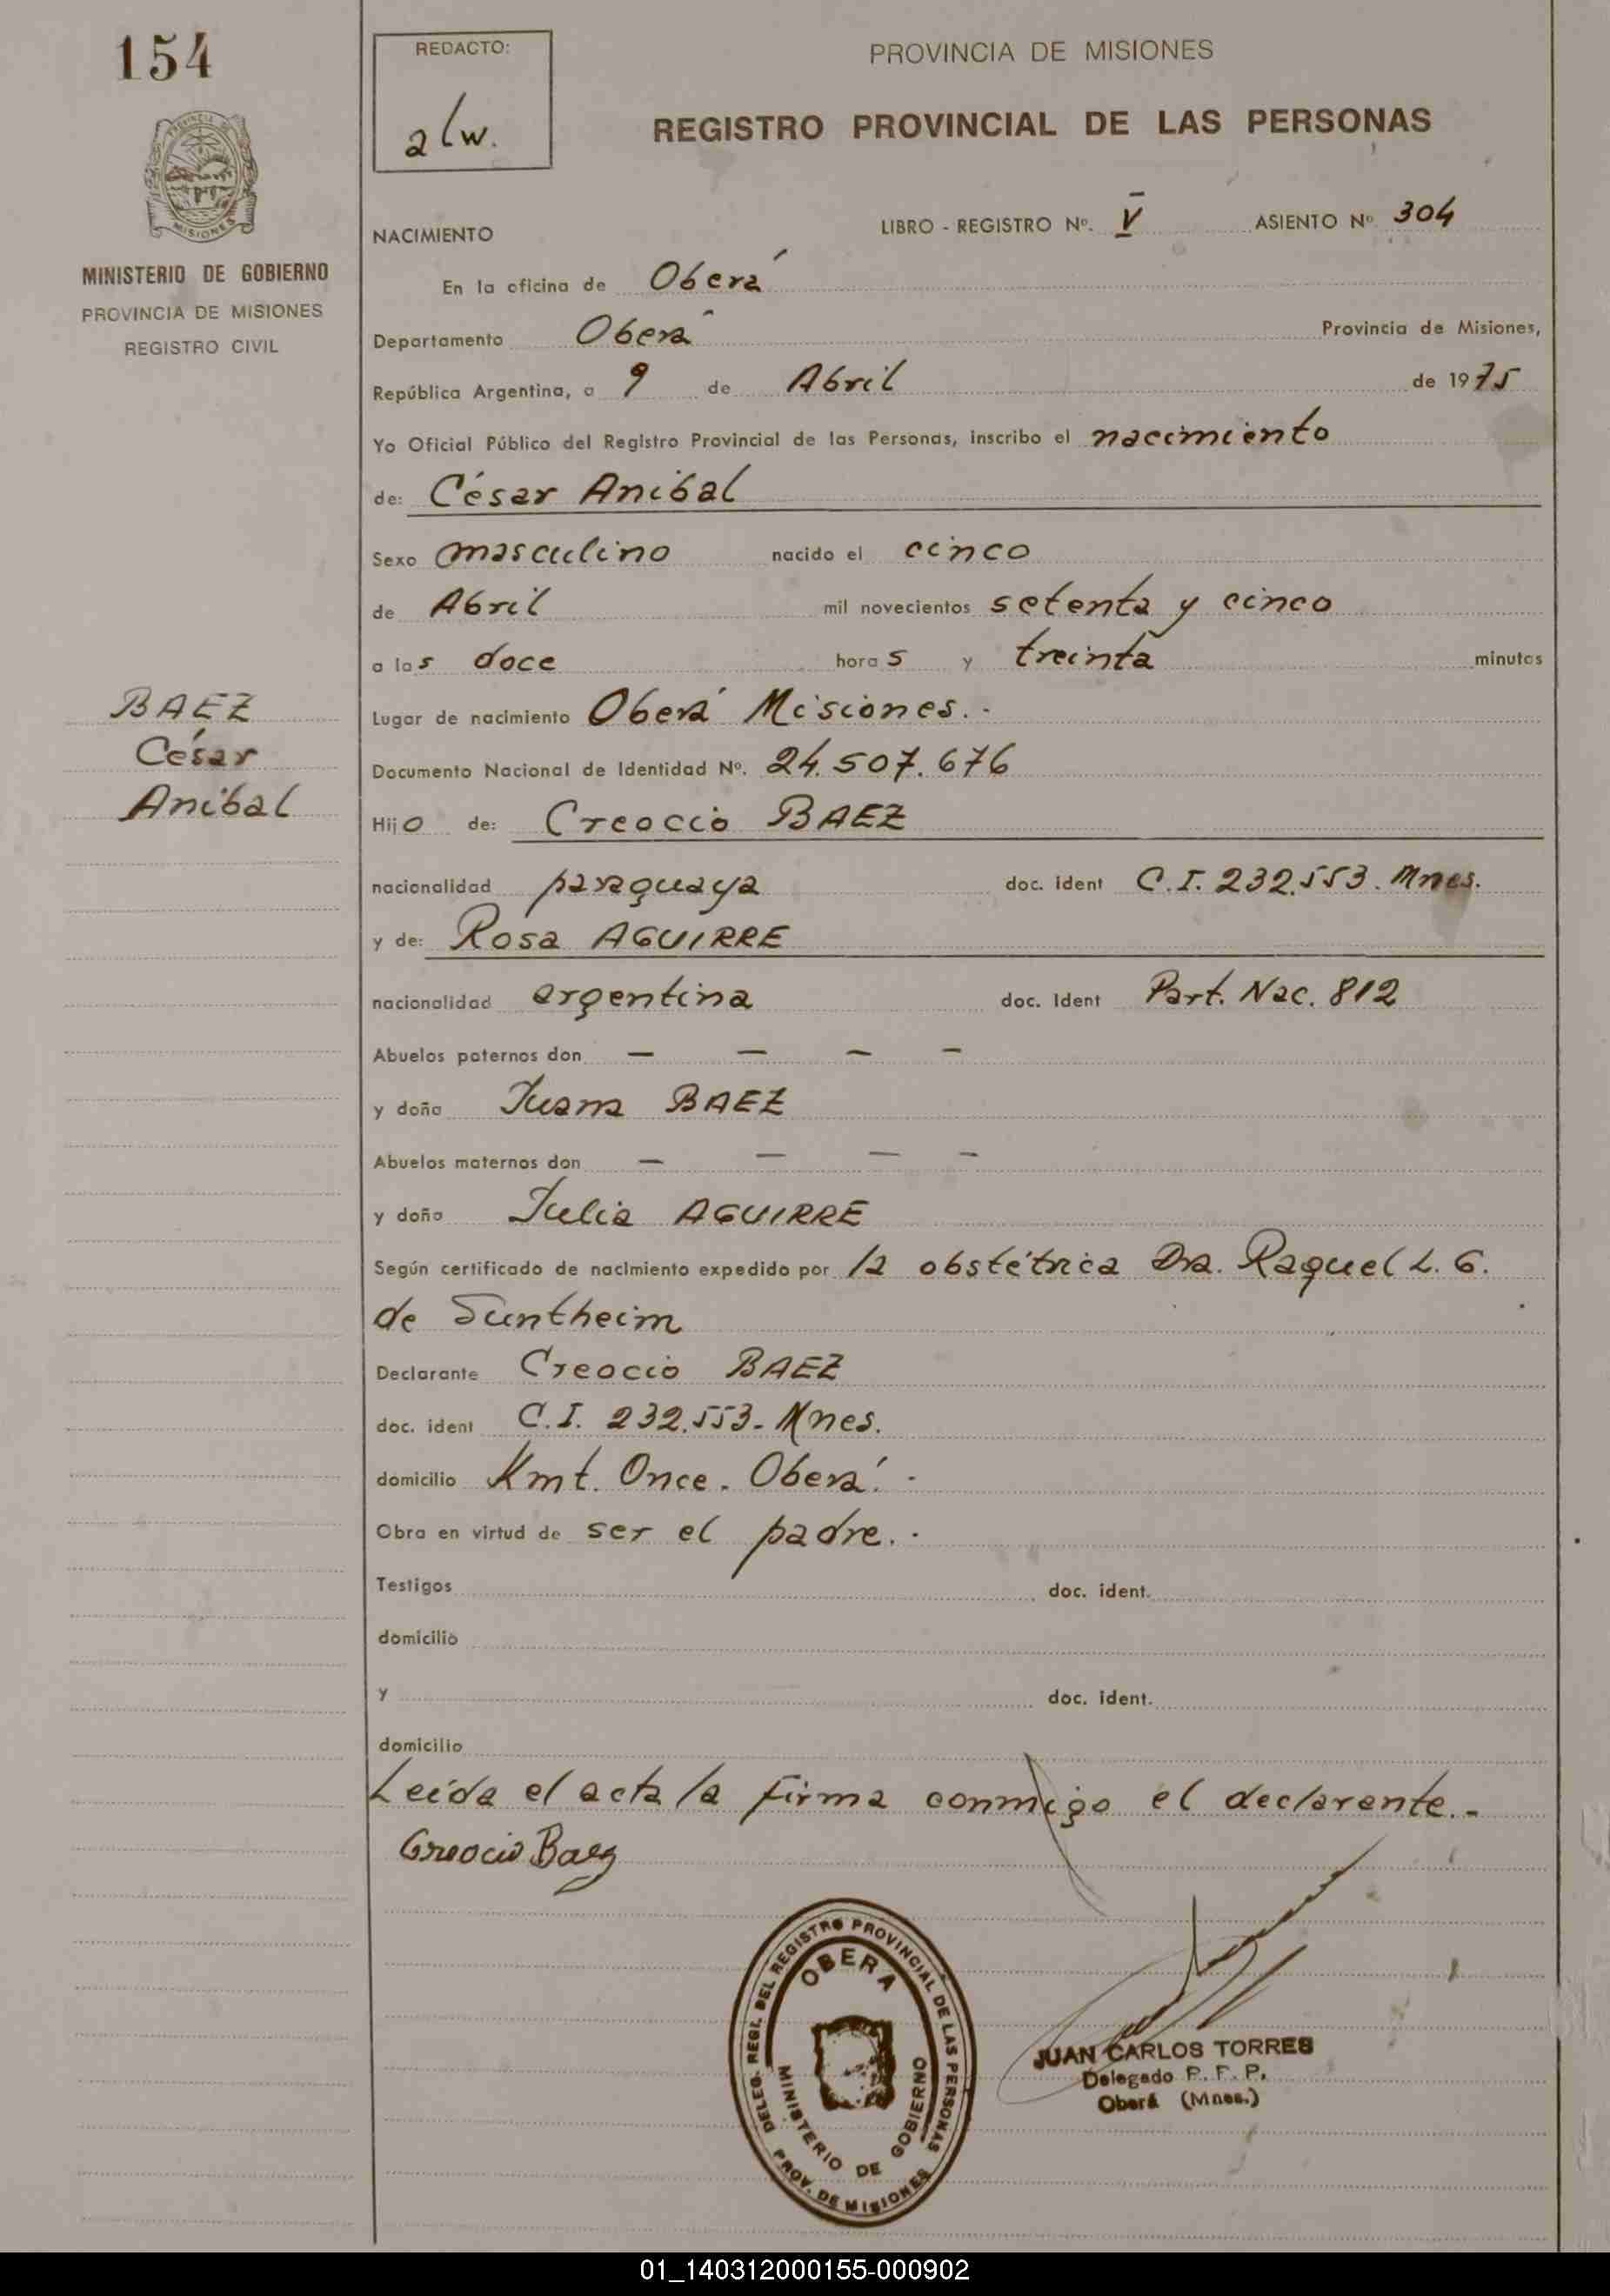 154
REDACTO:
alw.
PROVINCIA DE MISIONES
REGISTRO PROVINCIAL DE LAS PERSONAS
MISIONES
MINISTERIO DE GOBIERNO
PROVINCIA DE MISIONES
REGISTRO CIVIL
NACIMIENTO LIBRO - REGISTRO Nº. V ASIENTO Nº 304
En la oficina de Oberá
Departamento Oberá Provincia de Misiones,
República Argentina, a 9 de Abril de 1975
Yo Oficial Público del Registro Provincial de las Personas, inscribo el nacimiento
de: César Anibal
Sexo masculino nacido el cinco
de Abril mil novecientos setenta y cinco
a las doce horas y treinta minutos
BAEZ
César
Anibal
Lugar de nacimiento Oberá Misiones.-
Documento Nacional de Identidad Nº. 24.507.676
Hijo de: Creoccio BAEZ
nacionalidad paraguaya doc. ident C.I. 232.553. Mnes.
y de: Rosa AGUIRRE
nacionalidad argentina doc. Ident Part. Nac. 812
Abuelos paternos don — — — —
y doña Juana BAEZ
Abuelos maternos don — — — —
y doña Julia AGUIRRE
Según certificado de nacimiento expedido por la obstétrica Dra. Raquel L. G.
de Suntheim
Declarante Creocio BAEZ
doc. ident C.I. 232.553- Mnes.
domicilio Kmt. Once. Oberá.-
Obra en virtud de ser el padre.-
Testigos doc. ident.
domicilio
y doc. ident.
domicilio
Leída el acta la firma conmigo el declarante.-
Creocio Baez
DELEG. REGI. DEL REGISTRO PROVINCIAL DE LAS PERSONAS
OBERA
MINISTERIO DE GOBIERNO
PROV. DE MISIONES
JUAN CARLOS TORRES
Delegado P. F. P.
Oberá (Mnes.)
01_140312000155-000902